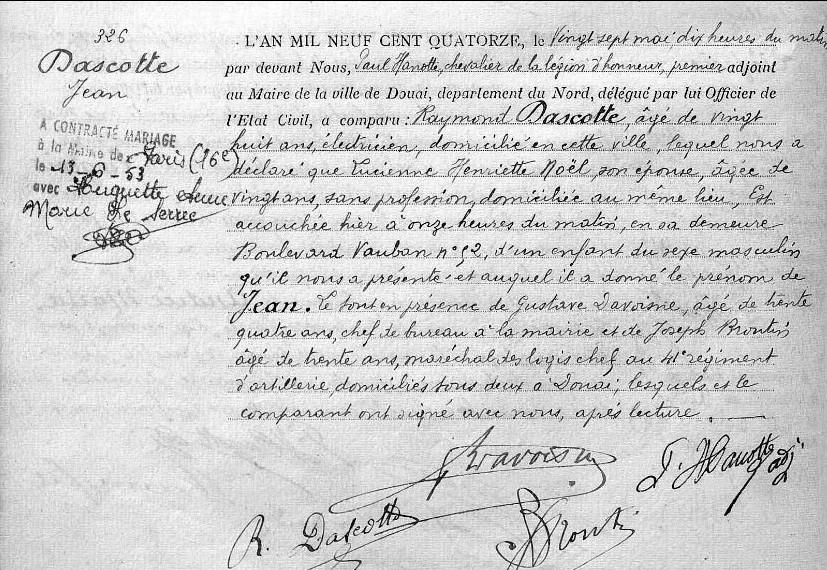 326
Dascotte
Jean
A CONTRACTÉ MARIAGE
à la Mairie de Paris (16e)
le 13-6-53
avec Huguette Anne
Marie de Serre
L'AN MIL NEUF CENT QUATORZE, le Vingt sept mai, dix heures du matin
par devant Nous, Paul Hanotte, chevalier de la légion d'honneur, premier adjoint
au Maire de la ville de Douai, departement du Nord, délégué par lui Officier de
l'Etat Civil, a comparu : Raymond Dascotte, âgé de vingt
huit ans, électricien, domicilié en cette ville, lequel nous a
déclaré que Lucienne Henriette Noël, son épouse, âgée de
vingt ans, sans profession, domiciliée au même lieu, Est
accouchée hier à onze heures du matin, en sa demeure
Boulevard Vauban n° 52, d'un enfant du sexe masculin
qu'il nous a présenté et auquel il a donné le prénom de
Jean. Le tout en présence de Gustave Davoisne, âgé de trente
quatre ans, chef de bureau à la mairie et de Joseph Brontin
âgé de trente ans, maréchal des logis chef au 41e régiment
d'artillerie, domiciliés tous deux à Douai, lesquels et le
comparant ont signé avec nous, après lecture.
G Davoisne
P. Hanotte adj
R. Dascotte
J Brontin